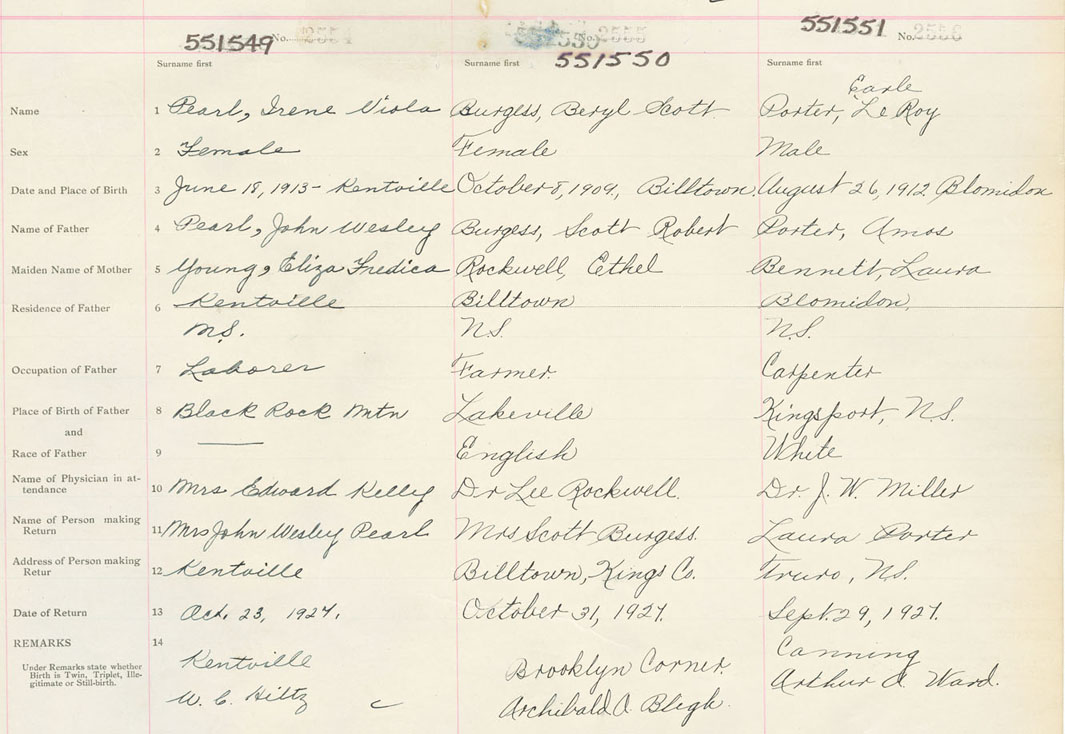 551549 No. 2554
2555
551550
551551 No. 2556
Surname first Surname first Surname first
Earle
Name 1 Pearl, Irene Viola Burgess, Beryl Scott Porter, Le Roy
Sex 2 Female Female Male
Date and Place of Birth 3 June 18, 1913 - Kentville October 8, 1909, Billtown. August 26, 1912 Blomidon
Name of Father 4 Pearl, John Wesley Burgess, Scott Robert Porter, Amos
Maiden Name of Mother 5 Young, Eliza Fredica Rockwell, Ethel Bennett, Laura
Residence of Father 6 Kentville Billtown Blomidon,
N.S. N.S. N.S.
Occupation of Father 7 Laborer Farmer. Carpenter
Place of Birth of Father 8 Black Rock Mtn Lakeville Kingsport, N.S.
and
Race of Father 9 — English White
Name of Physician in at-
tendance 10 Mrs Edward Kelley Dr Lee Rockwell. Dr. J. W. Miller
Name of Person making
Return 11 Mrs John Wesley Pearl Mrs Scott Burgess. Laura Porter
Address of Person making
Retur 12 Kentville Billtown, Kings Co. Truro, N.S.
Date of Return 13 Oct. 23, 1927. October 31, 1927. Sept. 29, 1927.
REMARKS 14 Canning
Under Remarks state whether
Birth is Twin, Triplet, Ille-
gitimate or Still-birth.
Kentville Brooklyn Corner. Arthur A. Ward.
W. C. Hiltz Archibald A. Bligh.